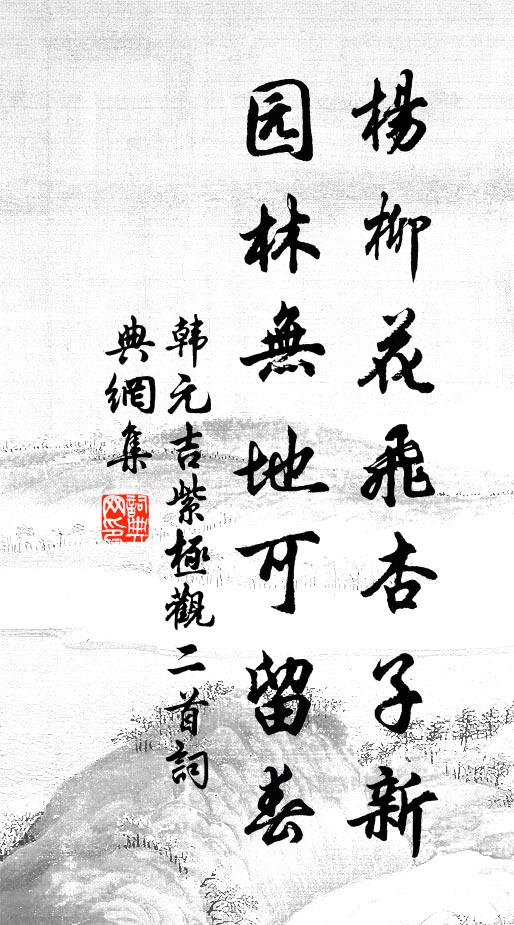 楊柳花飛杏子新
园林無地可留春
韩元吉紫極觀二首詞
典網集
詞典网印